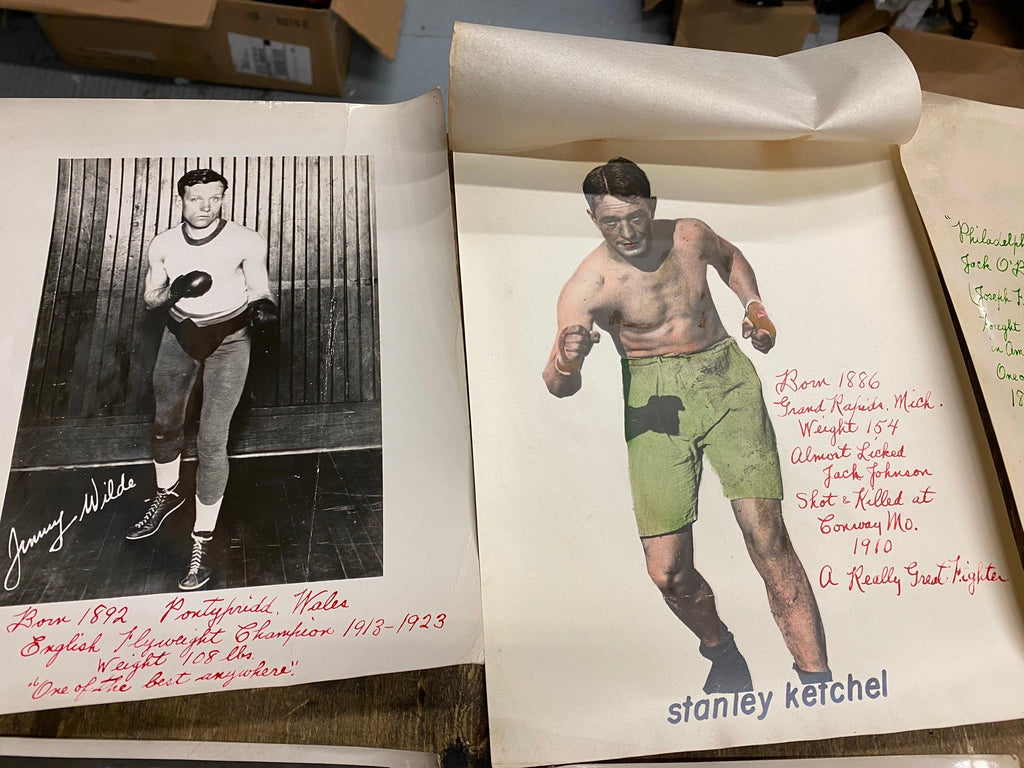 Jimmy Wilde
Born 1892 Pontypridd, Wales
English Flyweight Champion 1913-1923
Weight 108 lbs.
"One of the best anywhere".
Born 1886
Grand Rapids, Mich.
Weight 154
Almost Licked
Jack Johnson
Shot & Killed at
Conway Mo.
1910
A Really Great Fighter
stanley ketchel
"Philadelph
Jack O'B
Joseph
Fought
in Am
One o
18